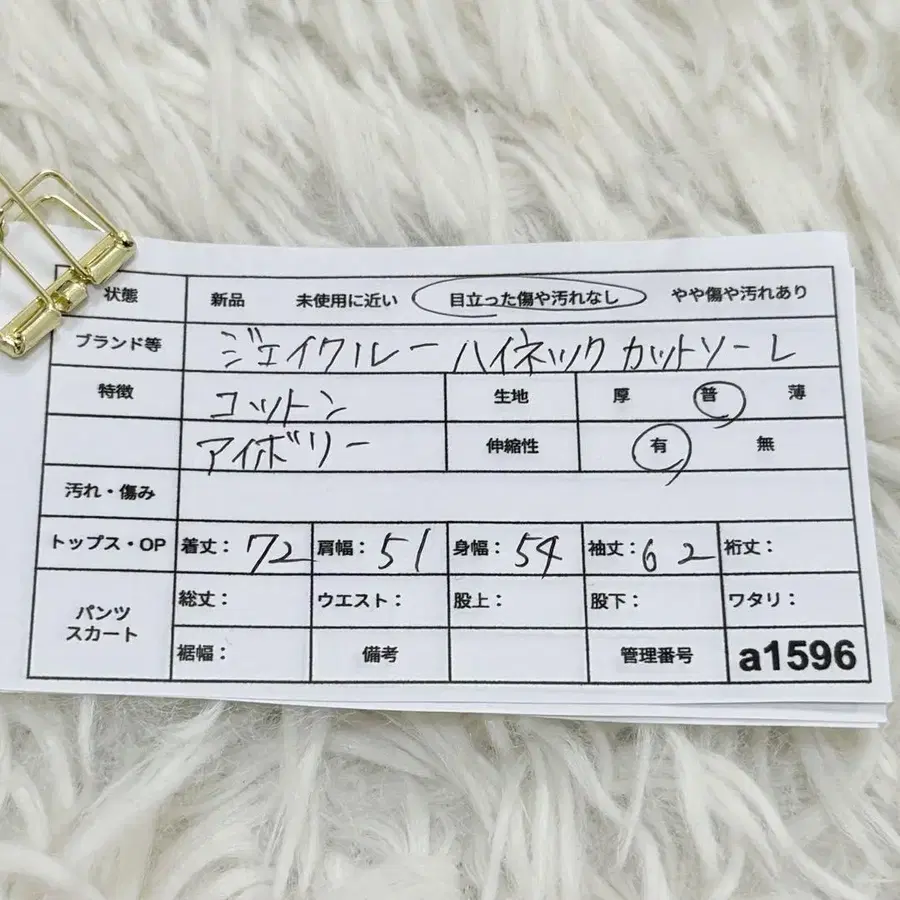 状態 新品 未使用に近い 目立った傷や汚れなし やや傷や汚れあり
ブランド等 ジェイクルー ハイネックカットソー L
特徴 コットン 生地 厚 普 薄
アイボリー 伸縮性 有 無
汚れ・傷み
トップス・OP 着丈: 72 肩幅: 51 身幅: 54 袖丈: 62 裄丈:
パンツ スカート 総丈: ウエスト: 股上: 股下: ワタリ:
裾幅: 備考 管理番号 a1596